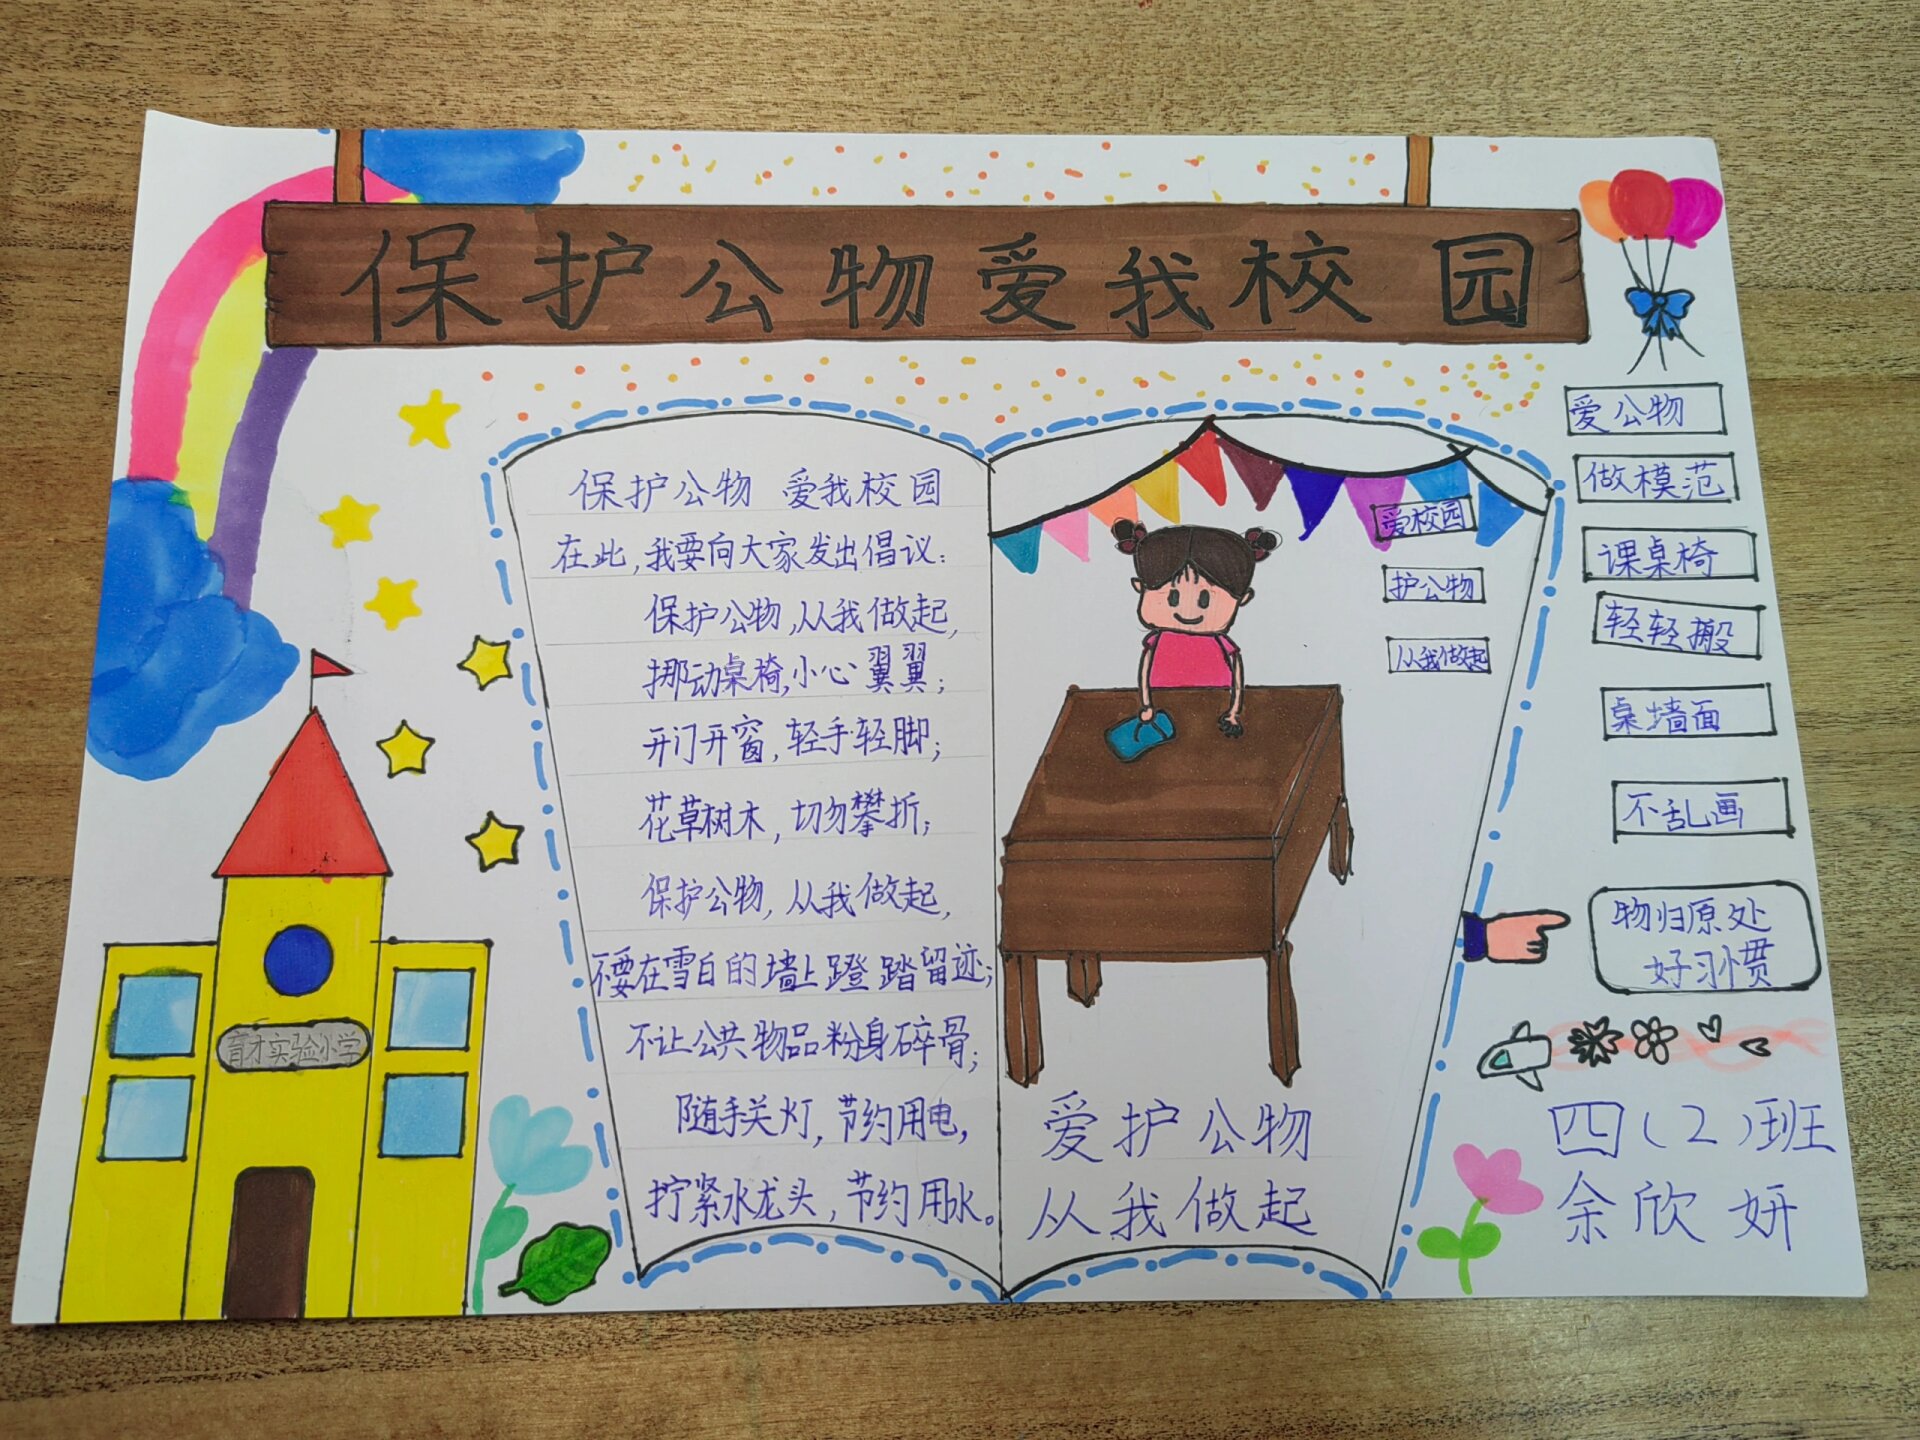 保护公物爱我校园
保护公物 爱我校园
在此,我要向大家发出倡议:
保护公物,从我做起,
挪动桌椅,小心翼翼;
开门开窗,轻手轻脚;
花草树木,切勿攀折;
保护公物,从我做起,
不要在雪白的墙上蹬踏留迹;
不让公共物品粉身碎骨;
随手关灯,节约用电,
拧紧水龙头,节约用水。
爱校园
护公物
从我做起
爱护公物
从我做起
爱公物
做模范
课桌椅
轻轻搬
桌墙面
不乱画
物归原处
好习惯
育才实验小学
四(2)班
余欣妍